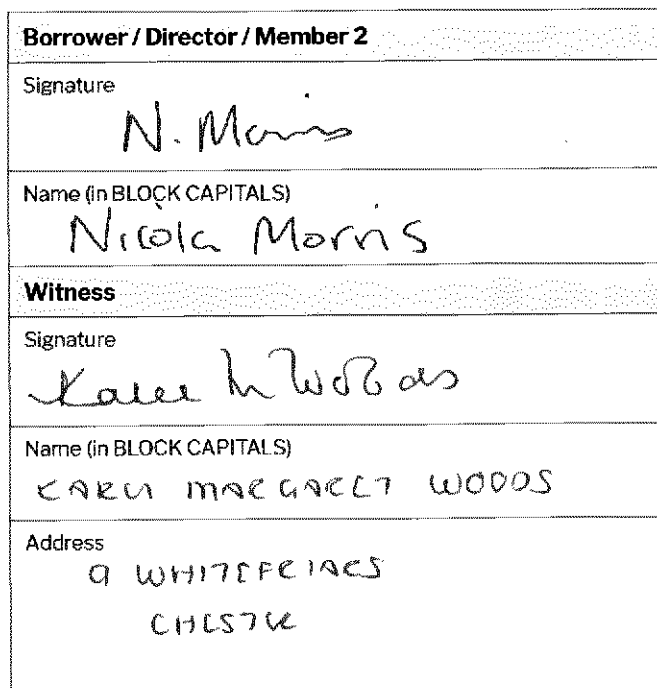 Borrower / Director / Member 2
Signature
N. Morris
Name (in BLOCK CAPITALS)
Nicola Morris
Witness
Signature
Karen M Woods
Name (in BLOCK CAPITALS)
KAREN MARGARET WOODS
Address
9 WHITEFRIARS
CHESTER